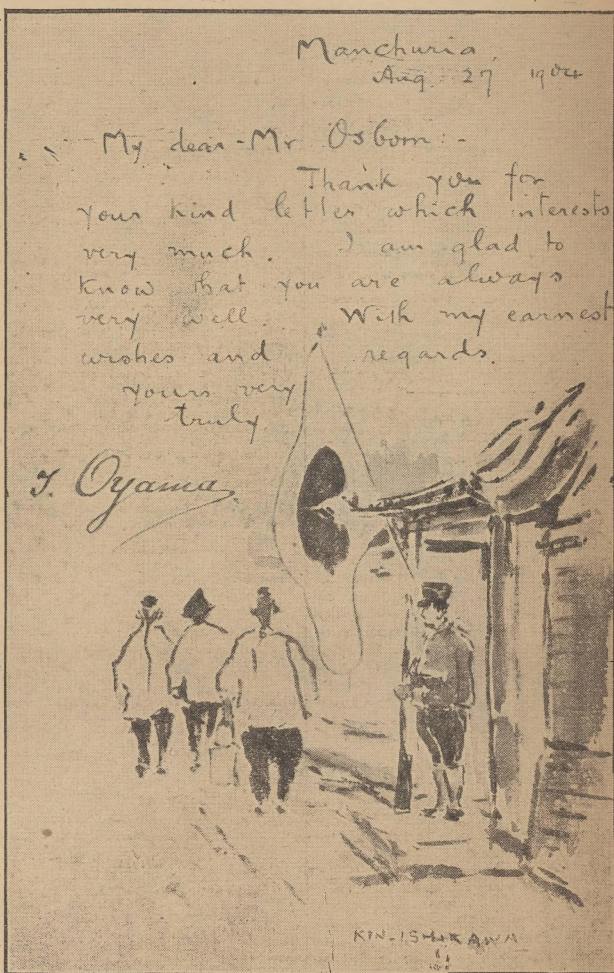 Manchuria.
Aug. 27 1904
My dear - Mr Osborn: -
Thank you for
your kind letter which interests
very much. I am glad to
know that you are always
very well. With my earnest
wishes and regards.
yours very
truly
I. Oyama
KIN-ISHIKAWA